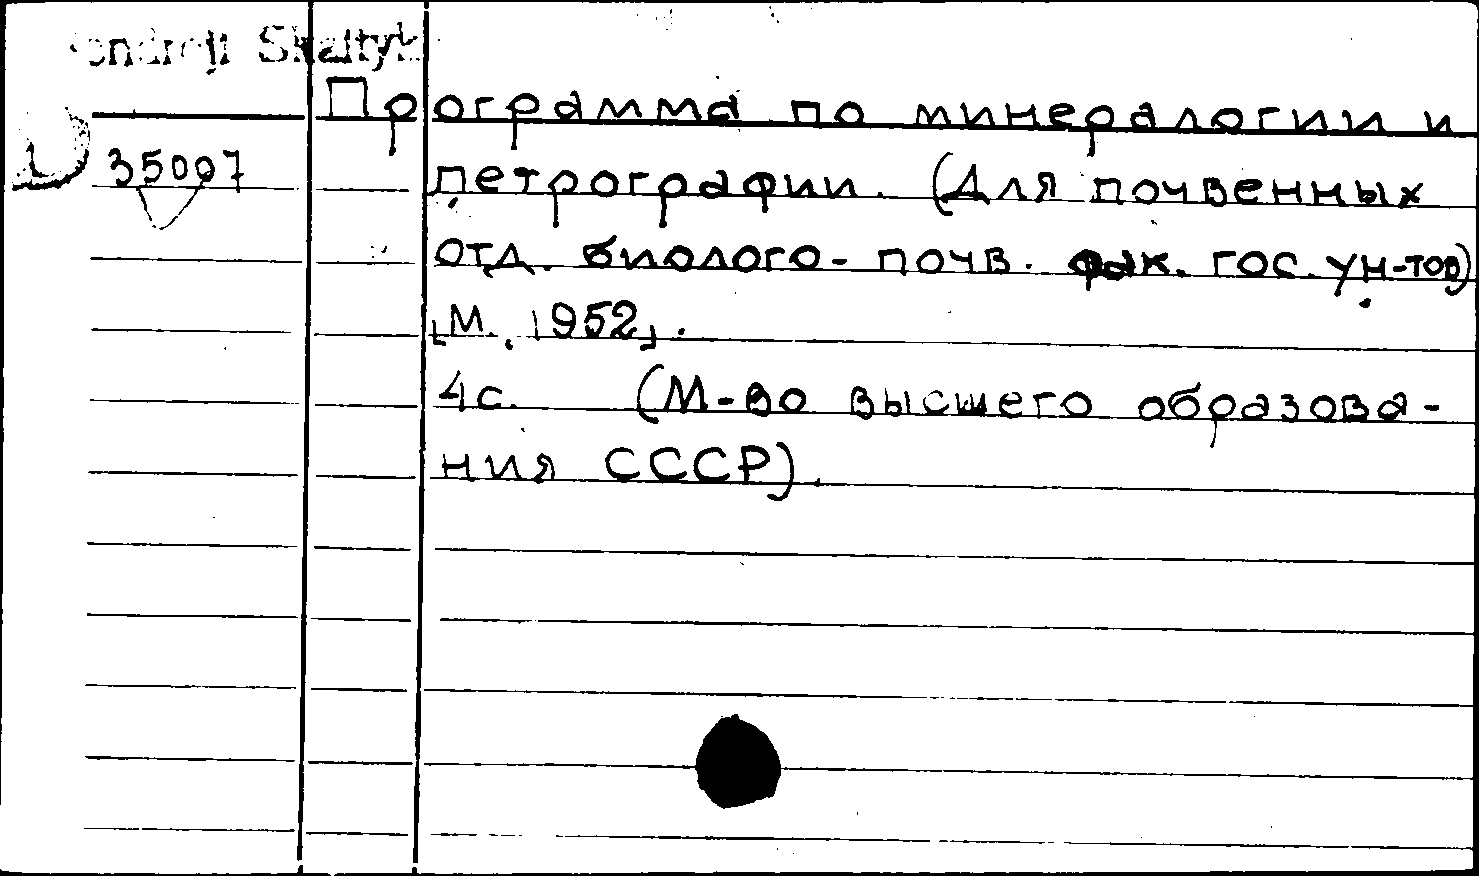 Программа по минералогии и
35007
петрографии. (Для почвенных
отд. биолого-почв. фак. гос. ун-тов)
[М., 1952].
4с. (М-во высшего образова-
ния СССР).